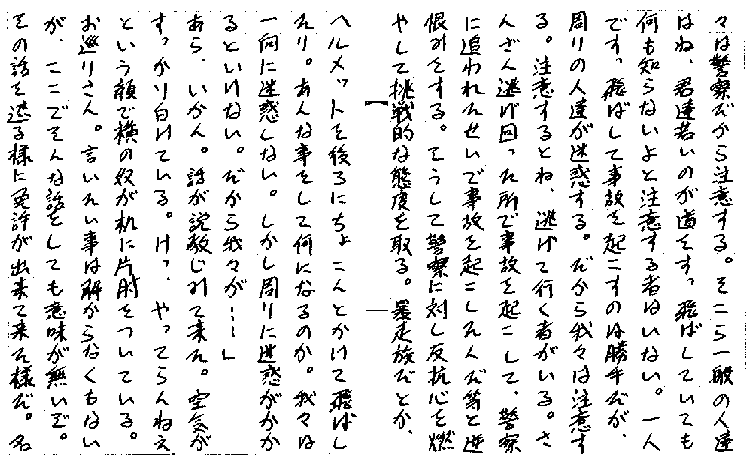 々は警察だから注意する。そこら一般の人達
はね、君達若いのが道をすっ飛ばしていても
何も知らないよと注意する者はいない。一人
です。飛ばして事故を起こすのは勝手だが、
周りの人達が迷惑する。だから我々は注意す
る。注意するとね、逃げて行く者がいる。さ
んざん逃げ回った所で事故を起こして、警察
に追われたせいで事故を起こしたんだ等と逆
恨みをする。そうして警察に対し反抗心を燃
やして挑戦的な態度を取る。暴走族だとか、
ヘルメットを後ろにちょこんとかけて飛ばし
たり。あんな事をして何になるのか。我々は
一向に迷惑しない。しかし周りに迷惑がかか
るといけない。だから我々が……」
あら、いかん。話が説教じみて来た。空気が
すっかり白けている。けっ、やってらんねえ
という顔で横の奴が机に片肘をついている。
お巡りさん。言いたい事は解からなくもない
が、ここでそんな話をしても意味が無いぞ。
その話を遮る様に免許が出来て来た様だ。名